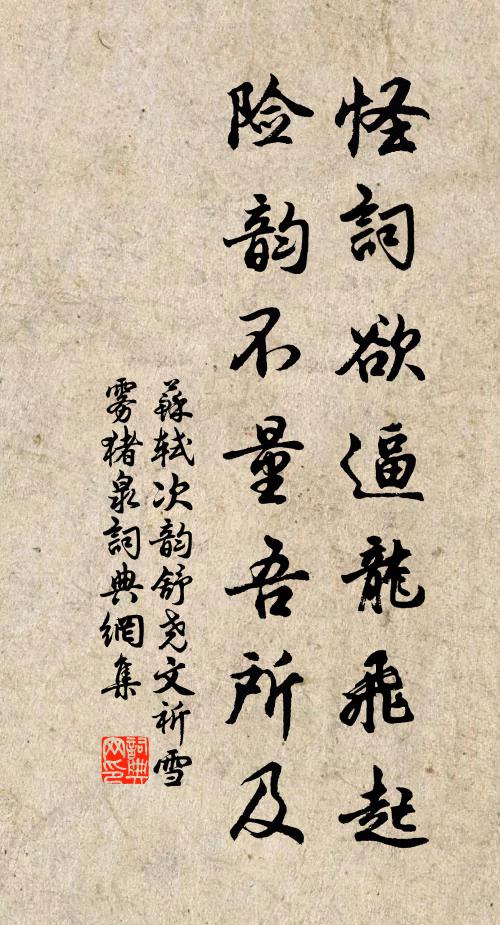 怪詞欲逼龍飛起
险韵不量吾所及
蘇軾次韵舒尧文祈雪
雾猪泉詞典網集
詞典
网印